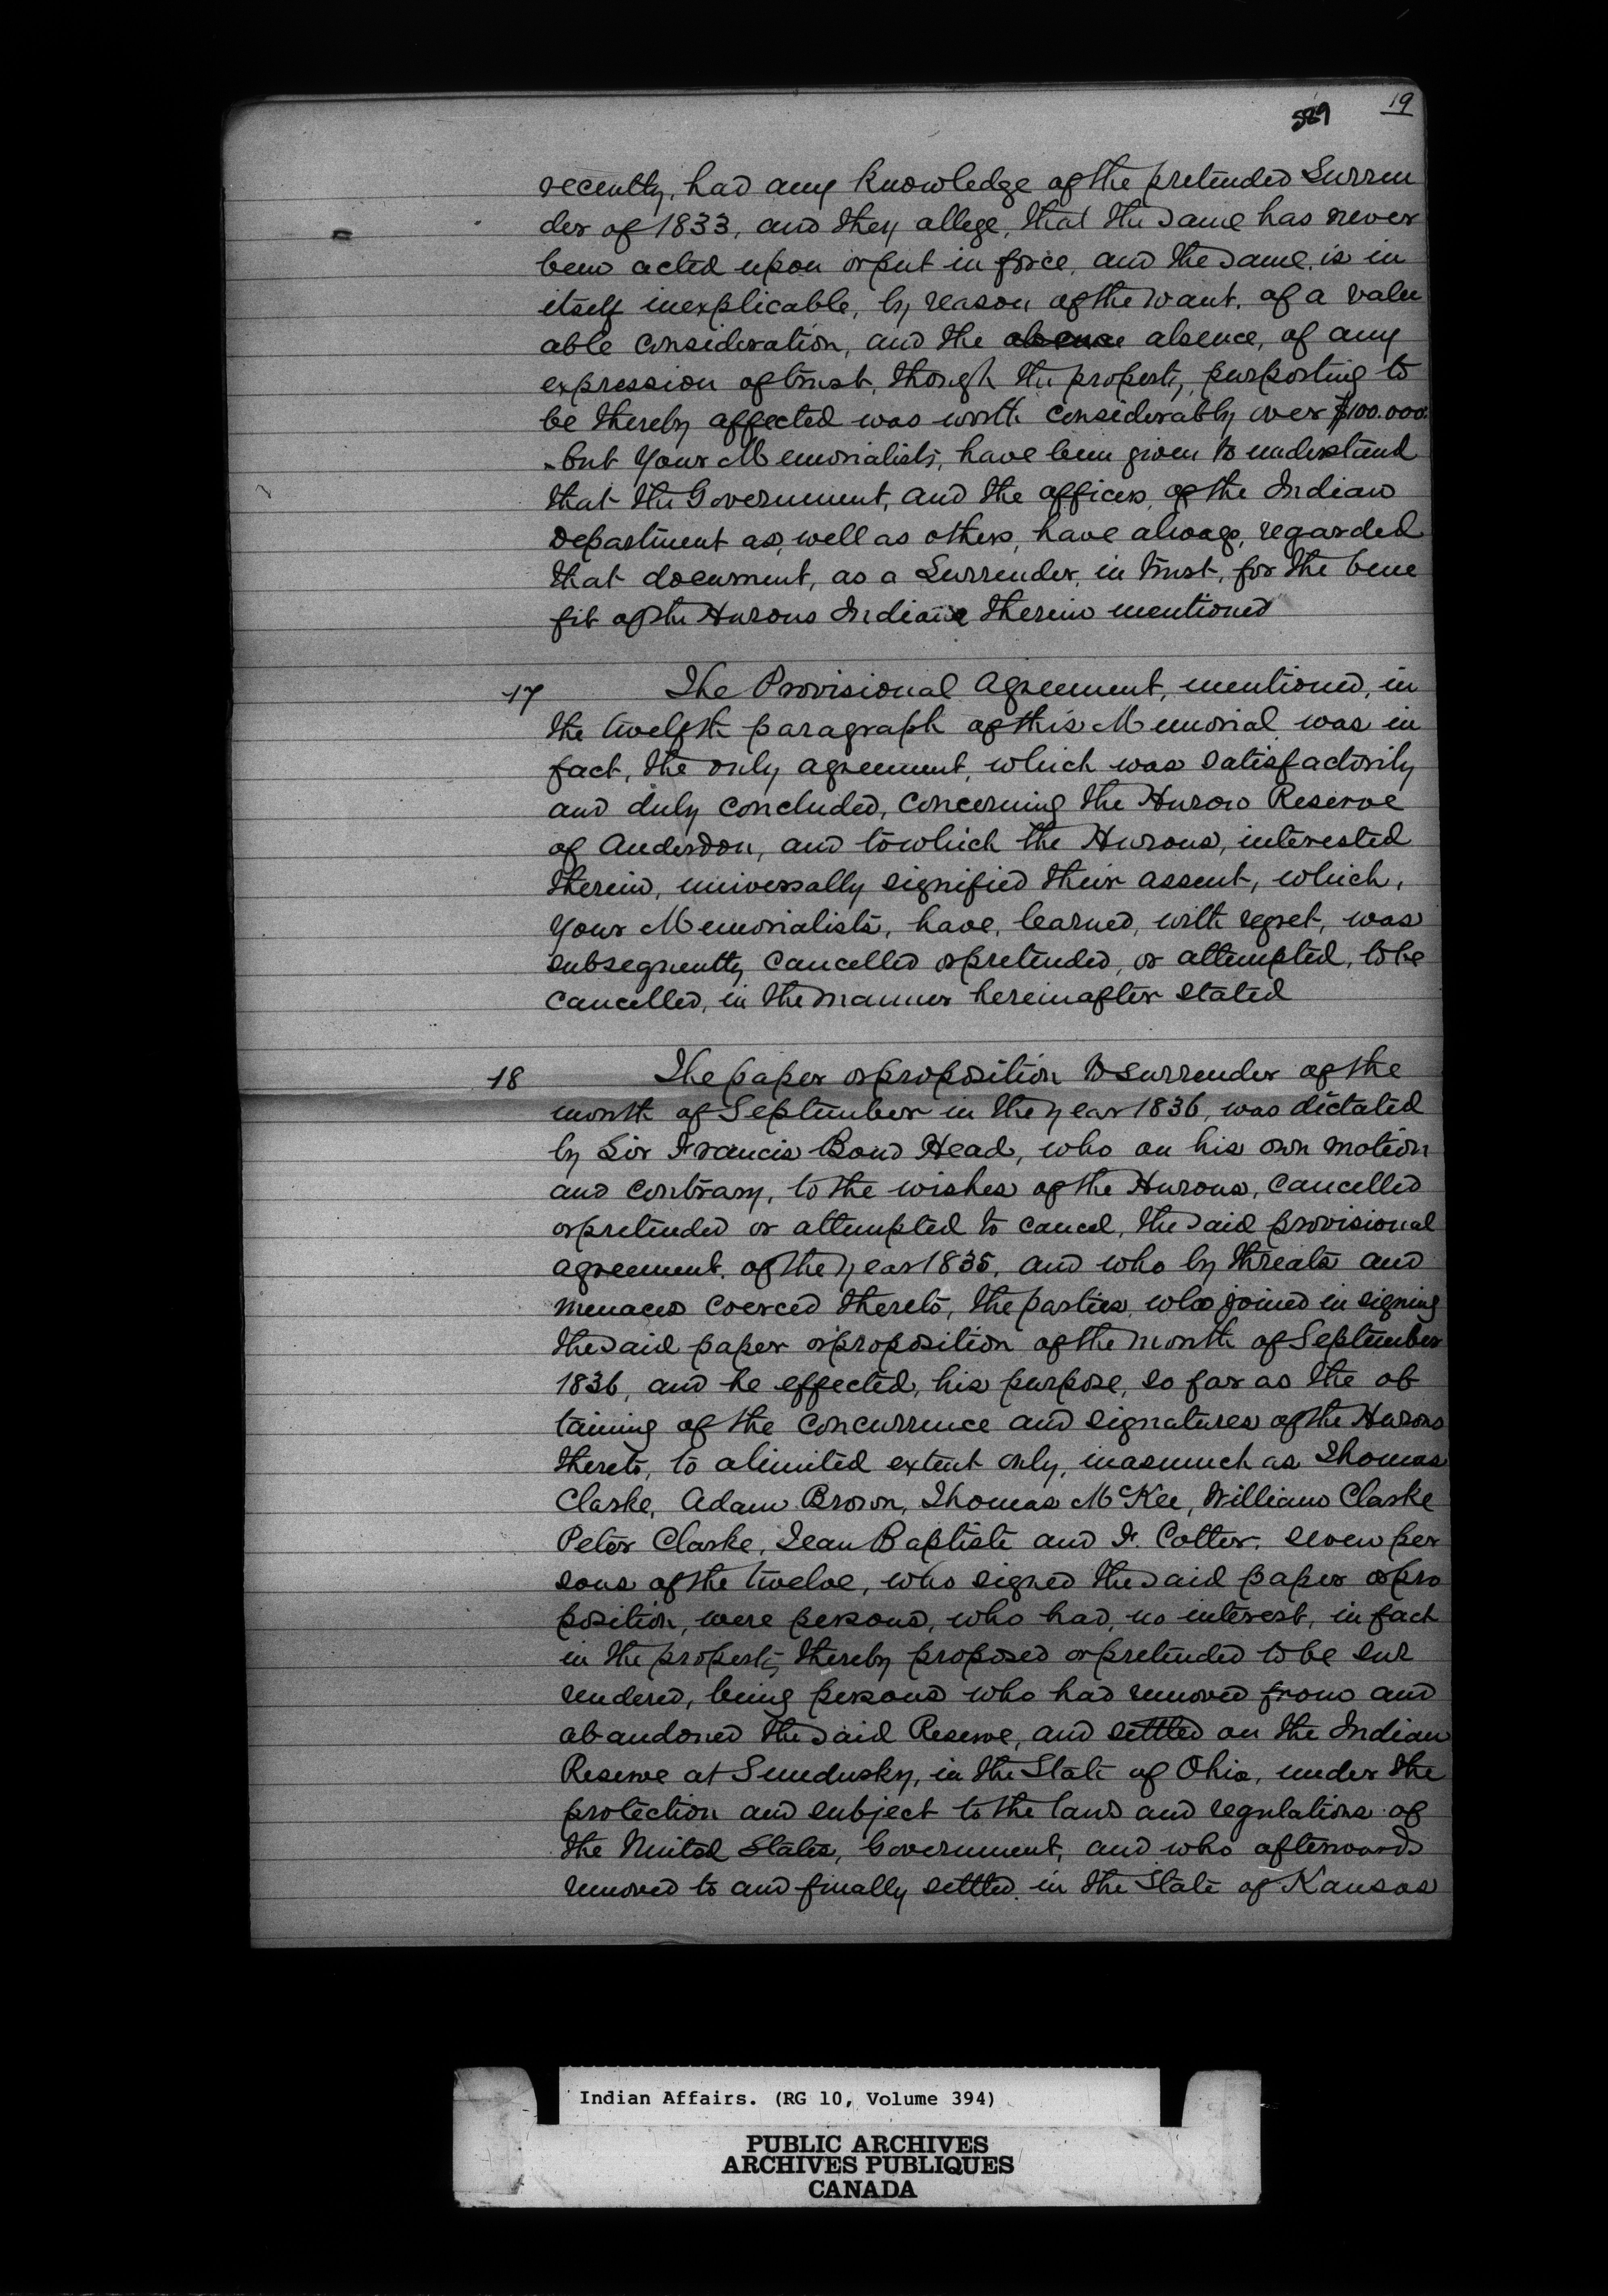 589 19
recently, had any knowledge of the pretended Surren
der of 1833, and they allege, that the same has never
been acted upon or put in force, and the same, is in
itself inexplicable, by reason of the want, of a valu
able consideration, and the absence absence, of any
expression of trust, though the property, purporting to
be thereby affected was worth considerably over $100.000.
- but Your Memorialists, have been given to understand
that the Government, and the officers, of the Indian
Department as, well as others, have always, regarded
that document, as a Surrender, in trust, for the bene
fit of the Hurons Indians therein mentioned
17 The Provisional Agreement, mentioned, in
the twelfth paragraph of this Memorial was in
fact, the only agreement, which was satisfactorily
and duly concluded, concerning the Huron Reserve
of Anderdon, and to which the Hurons, interested
therein, universally signified their assent, which,
Your Memorialists, have, learned, with regret, was
subsequently cancelled or pretended, or attempted, to be
cancelled, in the manner hereinafter stated
18 The paper or proposition to surrender of the
month of September in the year 1836, was dictated
by Sir Francis Bond Head, who on his own motion
and contrary, to the wishes of the Hurons, cancelled
or pretended or attempted to cancel, the said provisional
agreement, of the year 1835, and who by threats and
menaces coerced thereto, the parties, who joined in signing
the said paper or proposition of the month of September
1836, and he effected, his purpose, so far as the ob
taining of the concurrence and signatures of the Hurons
thereto, to a limited extent only, inasmuch as Thomas
Clarke, Adam Brown, Thomas McKee, William Clarke
Peter Clarke, Jean Baptiste and F. Cotter, seven per
sons of the twelve, who signed the said paper or pro
position, were persons, who had, no interest, in fact
in the property, thereby proposed or pretended to be sur
rendered, being persons who had removed from and
abandoned the said Reserve, and settled on the Indian
Reserve at Sundusky, in the State of Ohio, under the
protection and subject to the laws and regulations of
the United States, Government, and who afterwards
removed to and finally settled in the State of Kansas
Indian Affairs. (RG 10, Volume 394)
PUBLIC ARCHIVES
ARCHIVES PUBLIQUES
CANADA